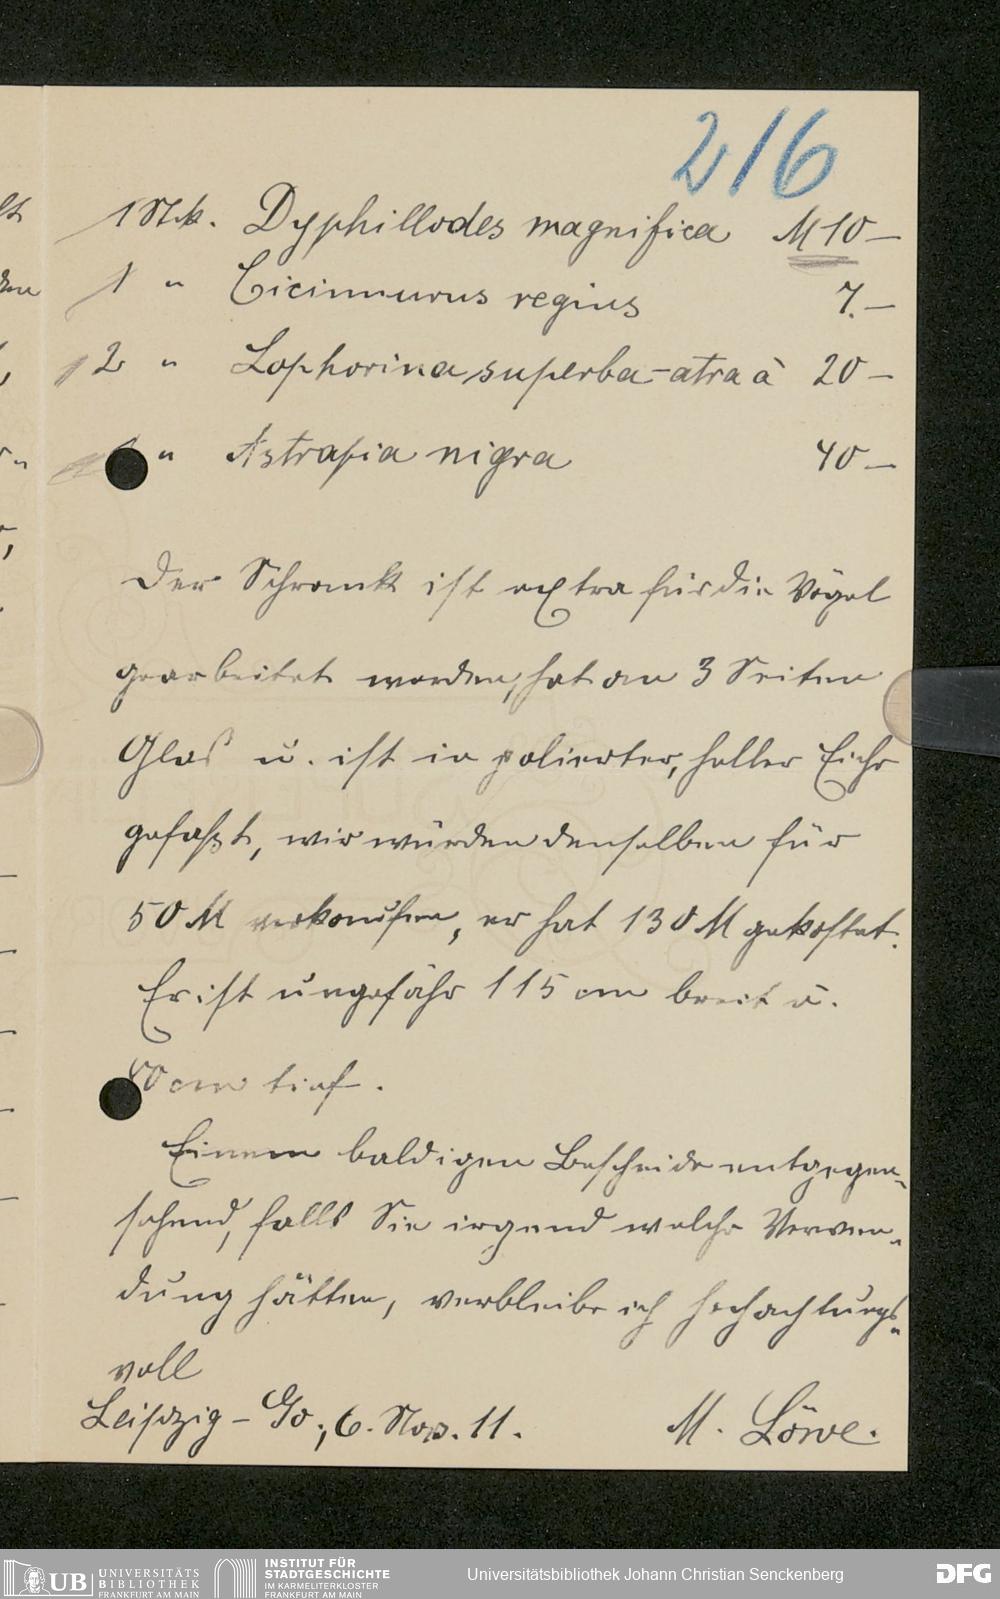 216
1 Stck. Dyphillodes magnifica M 10 —
1 " Cicinnurus regius 7.—
2 " Lophorina superba-atra à 20 —
" Astrapia nigra 40 —
Der Schrank ist extra für die Vögel
gearbeitet worden, hat an 3 Seiten
Glas u. ist in polierter, heller Eiche
gefaßt, wir würden denselben für
50 M verkaufen, er hat 130 M gekostet.
Er ist ungefähr 115 cm breit u.
40 cm tief.
Einem baldigen Bescheide entgegen-
sehend, falls Sie irgend welche Verwen-
dung hätten, verbleibe ich hochachtungs-
voll
Leipzig - Go., 6. Nov. 11.
M. Löwe.
UB UNIVERSITÄTS
BIBLIOTHEK
FRANKFURT AM MAIN
INSTITUT FÜR
STADTGESCHICHTE
IM KARMELITERKLOSTER
FRANKFURT AM MAIN
Universitätsbibliothek Johann Christian Senckenberg
DFG